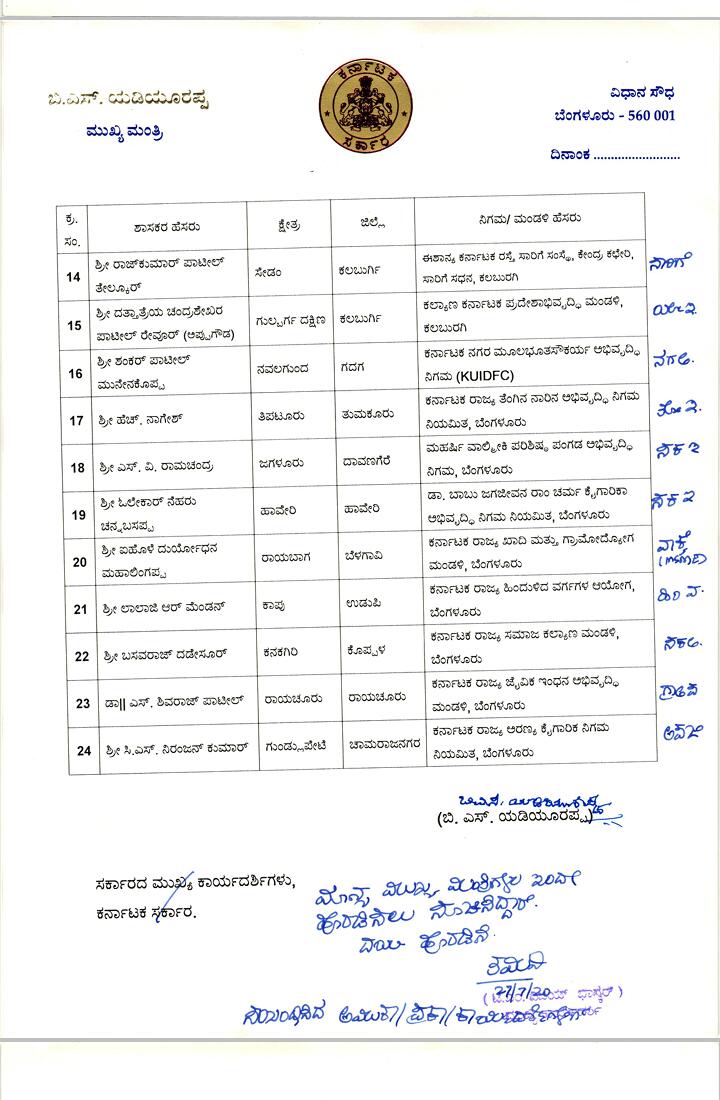 ಬಿ.ಎಸ್. ಯಡಿಯೂರಪ್ಪ
ಮುಖ್ಯ ಮಂತ್ರಿ
ಕರ್ನಾಟಕ
ಸರ್ಕಾರ
ವಿಧಾನ ಸೌಧ
ಬೆಂಗಳೂರು - 560 001
ದಿನಾಂಕ .........................
ಕ್ರ. ಸಂ. ಶಾಸಕರ ಹೆಸರು ಕ್ಷೇತ್ರ ಜಿಲ್ಲೆ ನಿಗಮ/ ಮಂಡಳಿ ಹೆಸರು
14 ಶ್ರೀ ರಾಜ್‌ಕುಮಾರ್ ಪಾಟೀಲ್ ತೇಲ್ಕೂರ್ ಸೇಡಂ ಕಲಬುರ್ಗಿ ಈಶಾನ್ಯ ಕರ್ನಾಟಕ ರಸ್ತೆ ಸಾರಿಗೆ ಸಂಸ್ಥೆ, ಕೇಂದ್ರ ಕಛೇರಿ,
ಸಾರಿಗೆ ಸಧನ, ಕಲಬುರಗಿ
ಸಾರಿಗೆ
15 ಶ್ರೀ ದತ್ತಾತ್ರೆಯ ಚಂದ್ರಶೇಖರ ಪಾಟೀಲ್ ರೇವೂರ್ (ಅಪ್ಪುಗೌಡ) ಗುಲ್ಬರ್ಗ ದಕ್ಷಿಣ ಕಲಬುರ್ಗಿ ಕಲ್ಯಾಣ ಕರ್ನಾಟಕ ಪ್ರದೇಶಾಭಿವೃದ್ಧಿ ಮಂಡಳಿ,
ಕಲಬುರಗಿ
16 ಶ್ರೀ ಶಂಕರ್ ಪಾಟೀಲ್ ಮುನೇನಕೊಪ್ಪ ನವಲಗುಂದ ಗದಗ ಕರ್ನಾಟಕ ನಗರ ಮೂಲಭೂತಸೌಕರ್ಯ ಅಭಿವೃದ್ಧಿ
ನಿಗಮ (KUIDFC)
17 ಶ್ರೀ ಹೆಚ್. ನಾಗೇಶ್ ತಿಪಟೂರ್ ತುಮಕೂರು ಕರ್ನಾಟಕ ರಾಜ್ಯ ತೆಂಗಿನ ನಾರಿನ ಅಭಿವೃದ್ಧಿ ನಿಗಮ
ನಿಯಮಿತ, ಬೆಂಗಳೂರು
18 ಶ್ರೀ ಎಸ್. ವಿ. ರಾಮಚಂದ್ರ ಜಗಳೂರು ದಾವಣಗೆರೆ ಮಹರ್ಷಿ ವಾಲ್ಮೀಕಿ ಪರಿಶಿಷ್ಟ ಪಂಗಡ ಅಭಿವೃದ್ಧಿ
ನಿಗಮ, ಬೆಂಗಳೂರು
19 ಶ್ರೀ ಓಲೇಕಾರ್ ನೆಹರು ಚನ್ನಬಸಪ್ಪ ಹಾವೇರಿ ಹಾವೇರಿ ಡಾ. ಬಾಬು ಜಗಜೀವನ ರಾಂ ಚರ್ಮ ಕೈಗಾರಿಕಾ
ಅಭಿವೃದ್ಧಿ ನಿಗಮ ನಿಯಮಿತ, ಬೆಂಗಳೂರು
20 ಶ್ರೀ ಐಹೊಳೆ ದುರ್ಯೋಧನ ಮಹಾಲಿಂಗಪ್ಪ ರಾಯಬಾಗ ಬೆಳಗಾವಿ ಕರ್ನಾಟಕ ರಾಜ್ಯ ಖಾದಿ ಮತ್ತು ಗ್ರಾಮೋದ್ಯೋಗ
ಮಂಡಳಿ, ಬೆಂಗಳೂರು
21 ಶ್ರೀ ಲಾಲಾಜಿ ಆರ್ ಮೆಂಡನ್ ಕಾಪು ಉಡುಪಿ ಕರ್ನಾಟಕ ರಾಜ್ಯ ಹಿಂದುಳಿದ ವರ್ಗಗಳ ಆಯೋಗ,
ಬೆಂಗಳೂರು
22 ಶ್ರೀ ಬಸವರಾಜ್ ದಡೇಸೂರ್ ಕನಕಗಿರಿ ಕೊಪ್ಪಳ ಕರ್ನಾಟಕ ರಾಜ್ಯ ಸಮಾಜ ಕಲ್ಯಾಣ ಮಂಡಳಿ,
ಬೆಂಗಳೂರು
23 ಡಾ|| ಎಸ್. ಶಿವರಾಜ್ ಪಾಟೀಲ್ ರಾಯಚೂರು ರಾಯಚೂರು ಕರ್ನಾಟಕ ರಾಜ್ಯ ಜೈವಿಕ ಇಂಧನ ಅಭಿವೃದ್ಧಿ
ಮಂಡಳಿ, ಬೆಂಗಳೂರು
24 ಶ್ರೀ ಸಿ.ಎಸ್. ನಿರಂಜನ್ ಕುಮಾರ್ ಗುಂಡ್ಲುಪೇಟೆ ಚಾಮರಾಜನಗರ ಕರ್ನಾಟಕ ರಾಜ್ಯ ಅರಣ್ಯ ಕೈಗಾರಿಕ ನಿಗಮ
ನಿಯಮಿತ, ಬೆಂಗಳೂರು
(ಬಿ. ಎಸ್. ಯಡಿಯೂರಪ್ಪ)
ಸರ್ಕಾರದ ಮುಖ್ಯ ಕಾರ್ಯದರ್ಶಿಗಳು,
ಕರ್ನಾಟಕ ಸರ್ಕಾರ.
ಮಾನ್ಯ ಮುಖ್ಯ ಮಂತ್ರಿಗಳು ಇಂದೇ
ಹೊರಡಿಸಲು ಸೂಚಿಸಿದ್ದಾರೆ.
ದಯವಿ ಹೊರಡಿಸಿ.
27/7/20